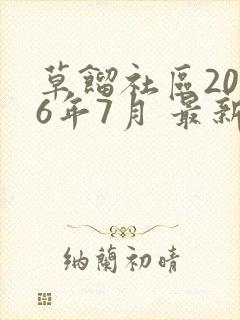 草餾社區20
6年7月 最新
納蘭初晴